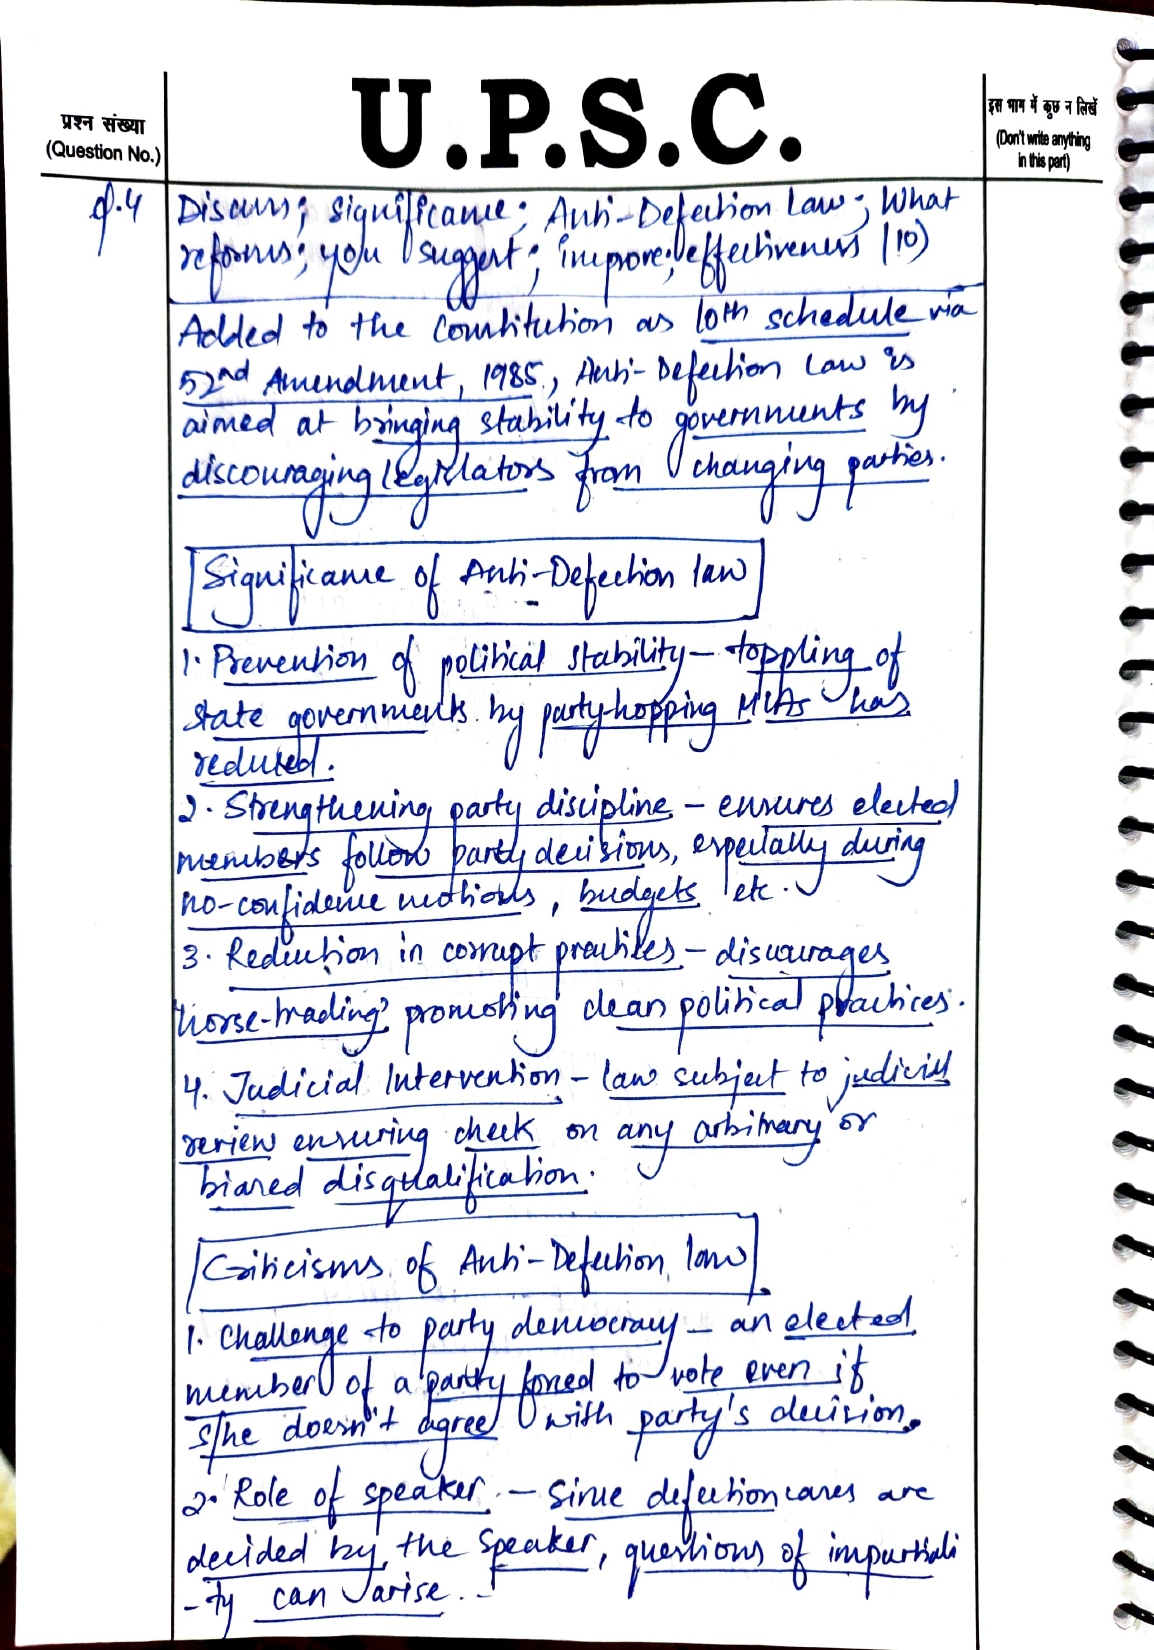 U.P.S.C.
प्रश्न संख्या
(Question No.)
इस भाग में कुछ न लिखें
(Don't write anything
in this part)
Q.4 Discuss; significance; Anti-Defection Law; What
reforms; you suggest; improve; effectiveness (10)
Added to the Constitution as 10th schedule via
52nd Amendment, 1985, Anti-Defection Law is
aimed at bringing stability to governments by
discouraging legislators from changing parties.
Significance of Anti-Defection law
1. Prevention of political stability – toppling of
state governments by party-hopping MLAs has
reduced.
2. Strengthening party discipline – ensures elected
members follow party decisions, especially during
no-confidence motions, budgets etc.
3. Reduction in corrupt practices – discourages
'horse-trading' promoting clean political practices.
4. Judicial Intervention – law subject to judicial
review ensuring check on any arbitrary or
biased disqualification.
Criticisms of Anti-Defection law
1. Challenge to party democracy – an elected
member of a party forced to vote even if
s/he doesn't agree with party's decision.
2. Role of speaker – Since defection cases are
decided by the Speaker, questions of impartiali
-ty can arise.